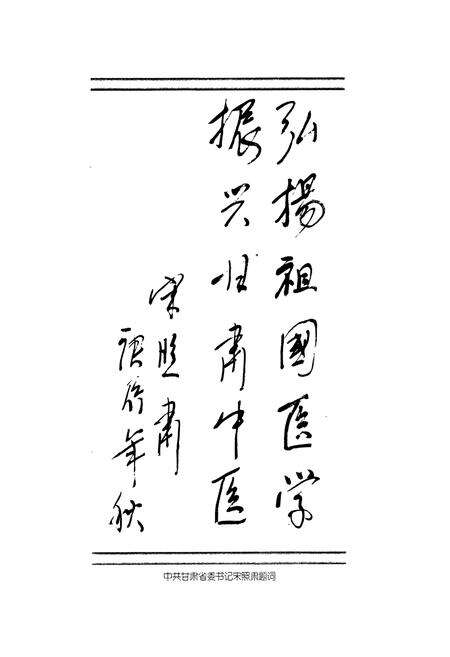 弘揚祖國医学
振兴甘肃中医
宋照肃
庚辰年秋
中共甘肃省委书记宋照肃题词